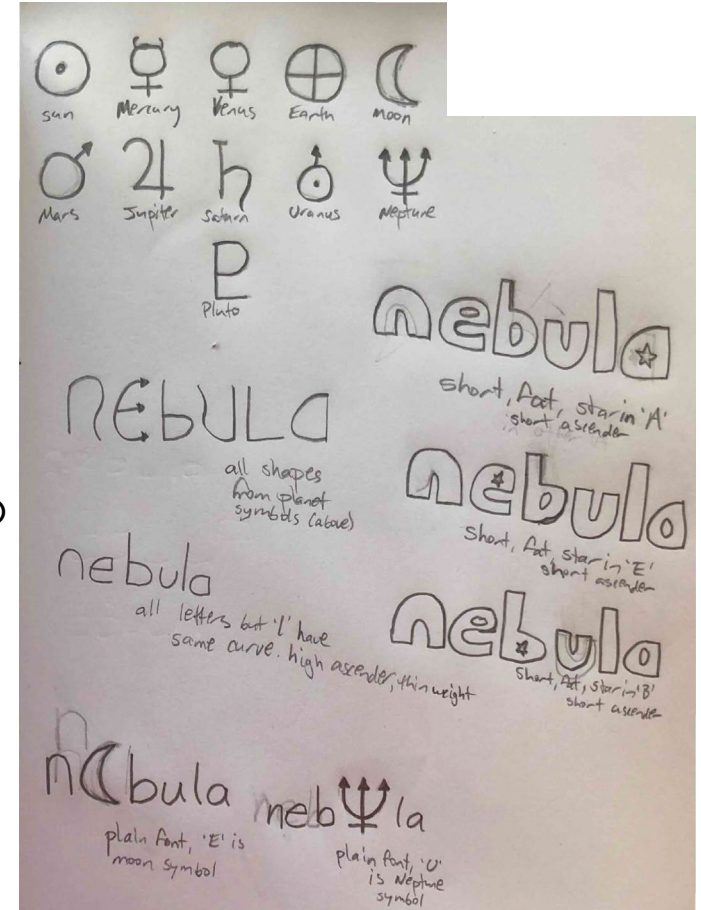 sun Mercury Venus Earth Moon
Mars Jupiter Saturn Uranus Neptune
Pluto
nebula
short, fat, star in 'A'
short ascender
NEBULA
all shapes
from planet
symbols (above)
nebula
short, fat, star in 'E'
short ascender
nebula
all letters but 'l' have
same curve. high ascender, thin weight
nebula
short, fat, star in 'B'
short ascender
n bula
plain font, 'E' is
moon symbol
neb la
plain font, 'U'
is Neptune
symbol